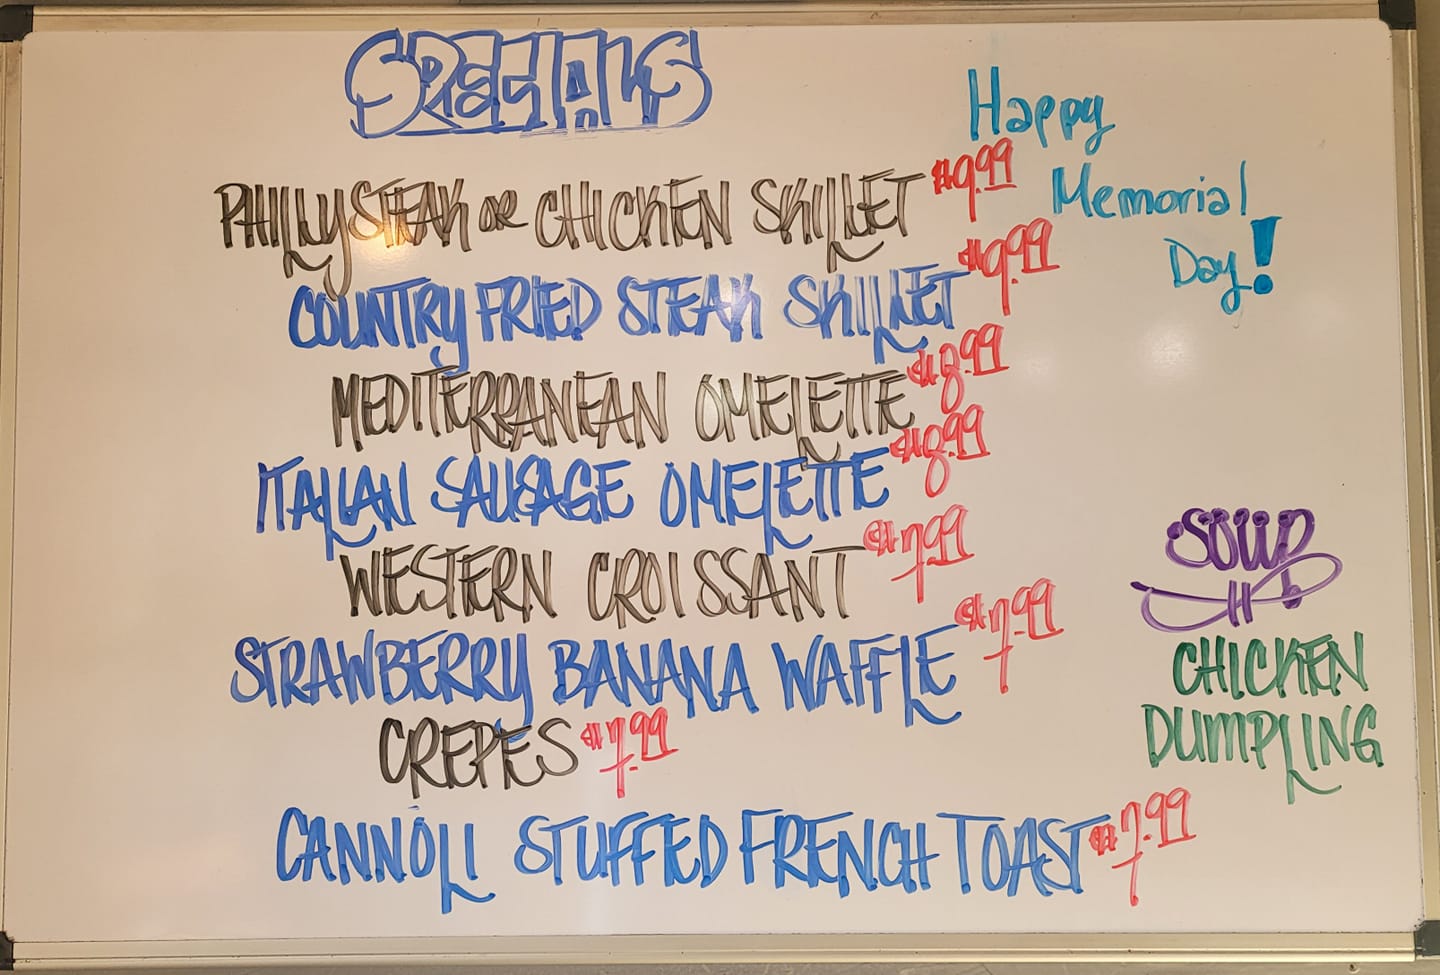 SPECIALS
Happy
Memorial
Day!
PHILLY STEAK OR CHICKEN SKILLET $9.99
COUNTRY FRIED STEAK SKILLET $9.99
MEDITERRANEAN OMELETTE $8.99
ITALIAN SAUSAGE OMELETTE $8.99
WESTERN CROISSANT $7.99
STRAWBERRY BANANA WAFFLE $7.99
CREPES $7.99
CANNOLI STUFFED FRENCH TOAST $7.99
SOUP
CHICKEN
DUMPLING